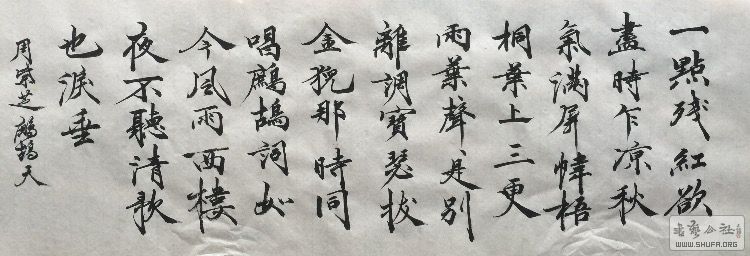 一點残紅欲
盡時乍涼秋
氣滿屏幃梧
桐葉上三更
雨葉聲、是別
離調寶瑟拔
金猊那時同
唱鷓鴣詞如
今風雨西樓
夜不聽清歌
也淚垂
周紫芝鷓鴣天
书艺公社
WWW.SHUFA.ORG